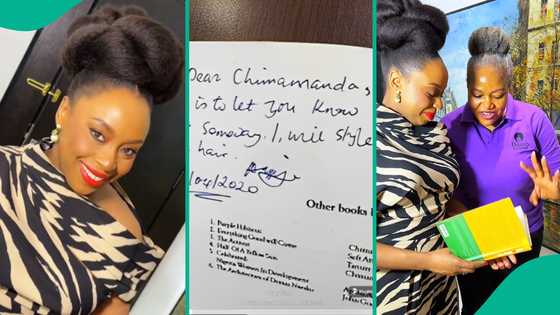 Dear Chimamanda,
is to let you know
Someday. I, will style
hair.
/04/2020
Other books
1. Purple Hibiscus
2. Everything Good will Come
3. The Activist
4. Half Of A Yellow Sun
5. Celebrated:
Nigeria Women In Development
6. The Architecture of Demas Nwoko
Chima
Seft
Tanur
Chima
John